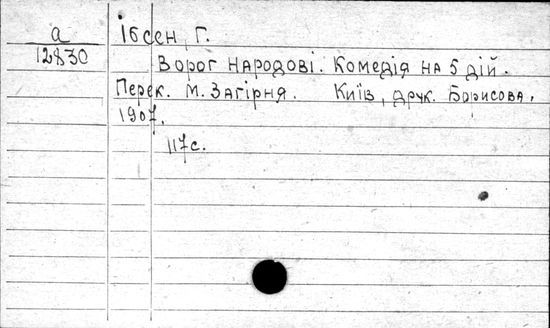 а
12830
Ібсен, Г.
Ворог народові. Комедія на 5 дій.
Перек. М. Загірня. Київ, друк. Борисова,
1907.
117с.